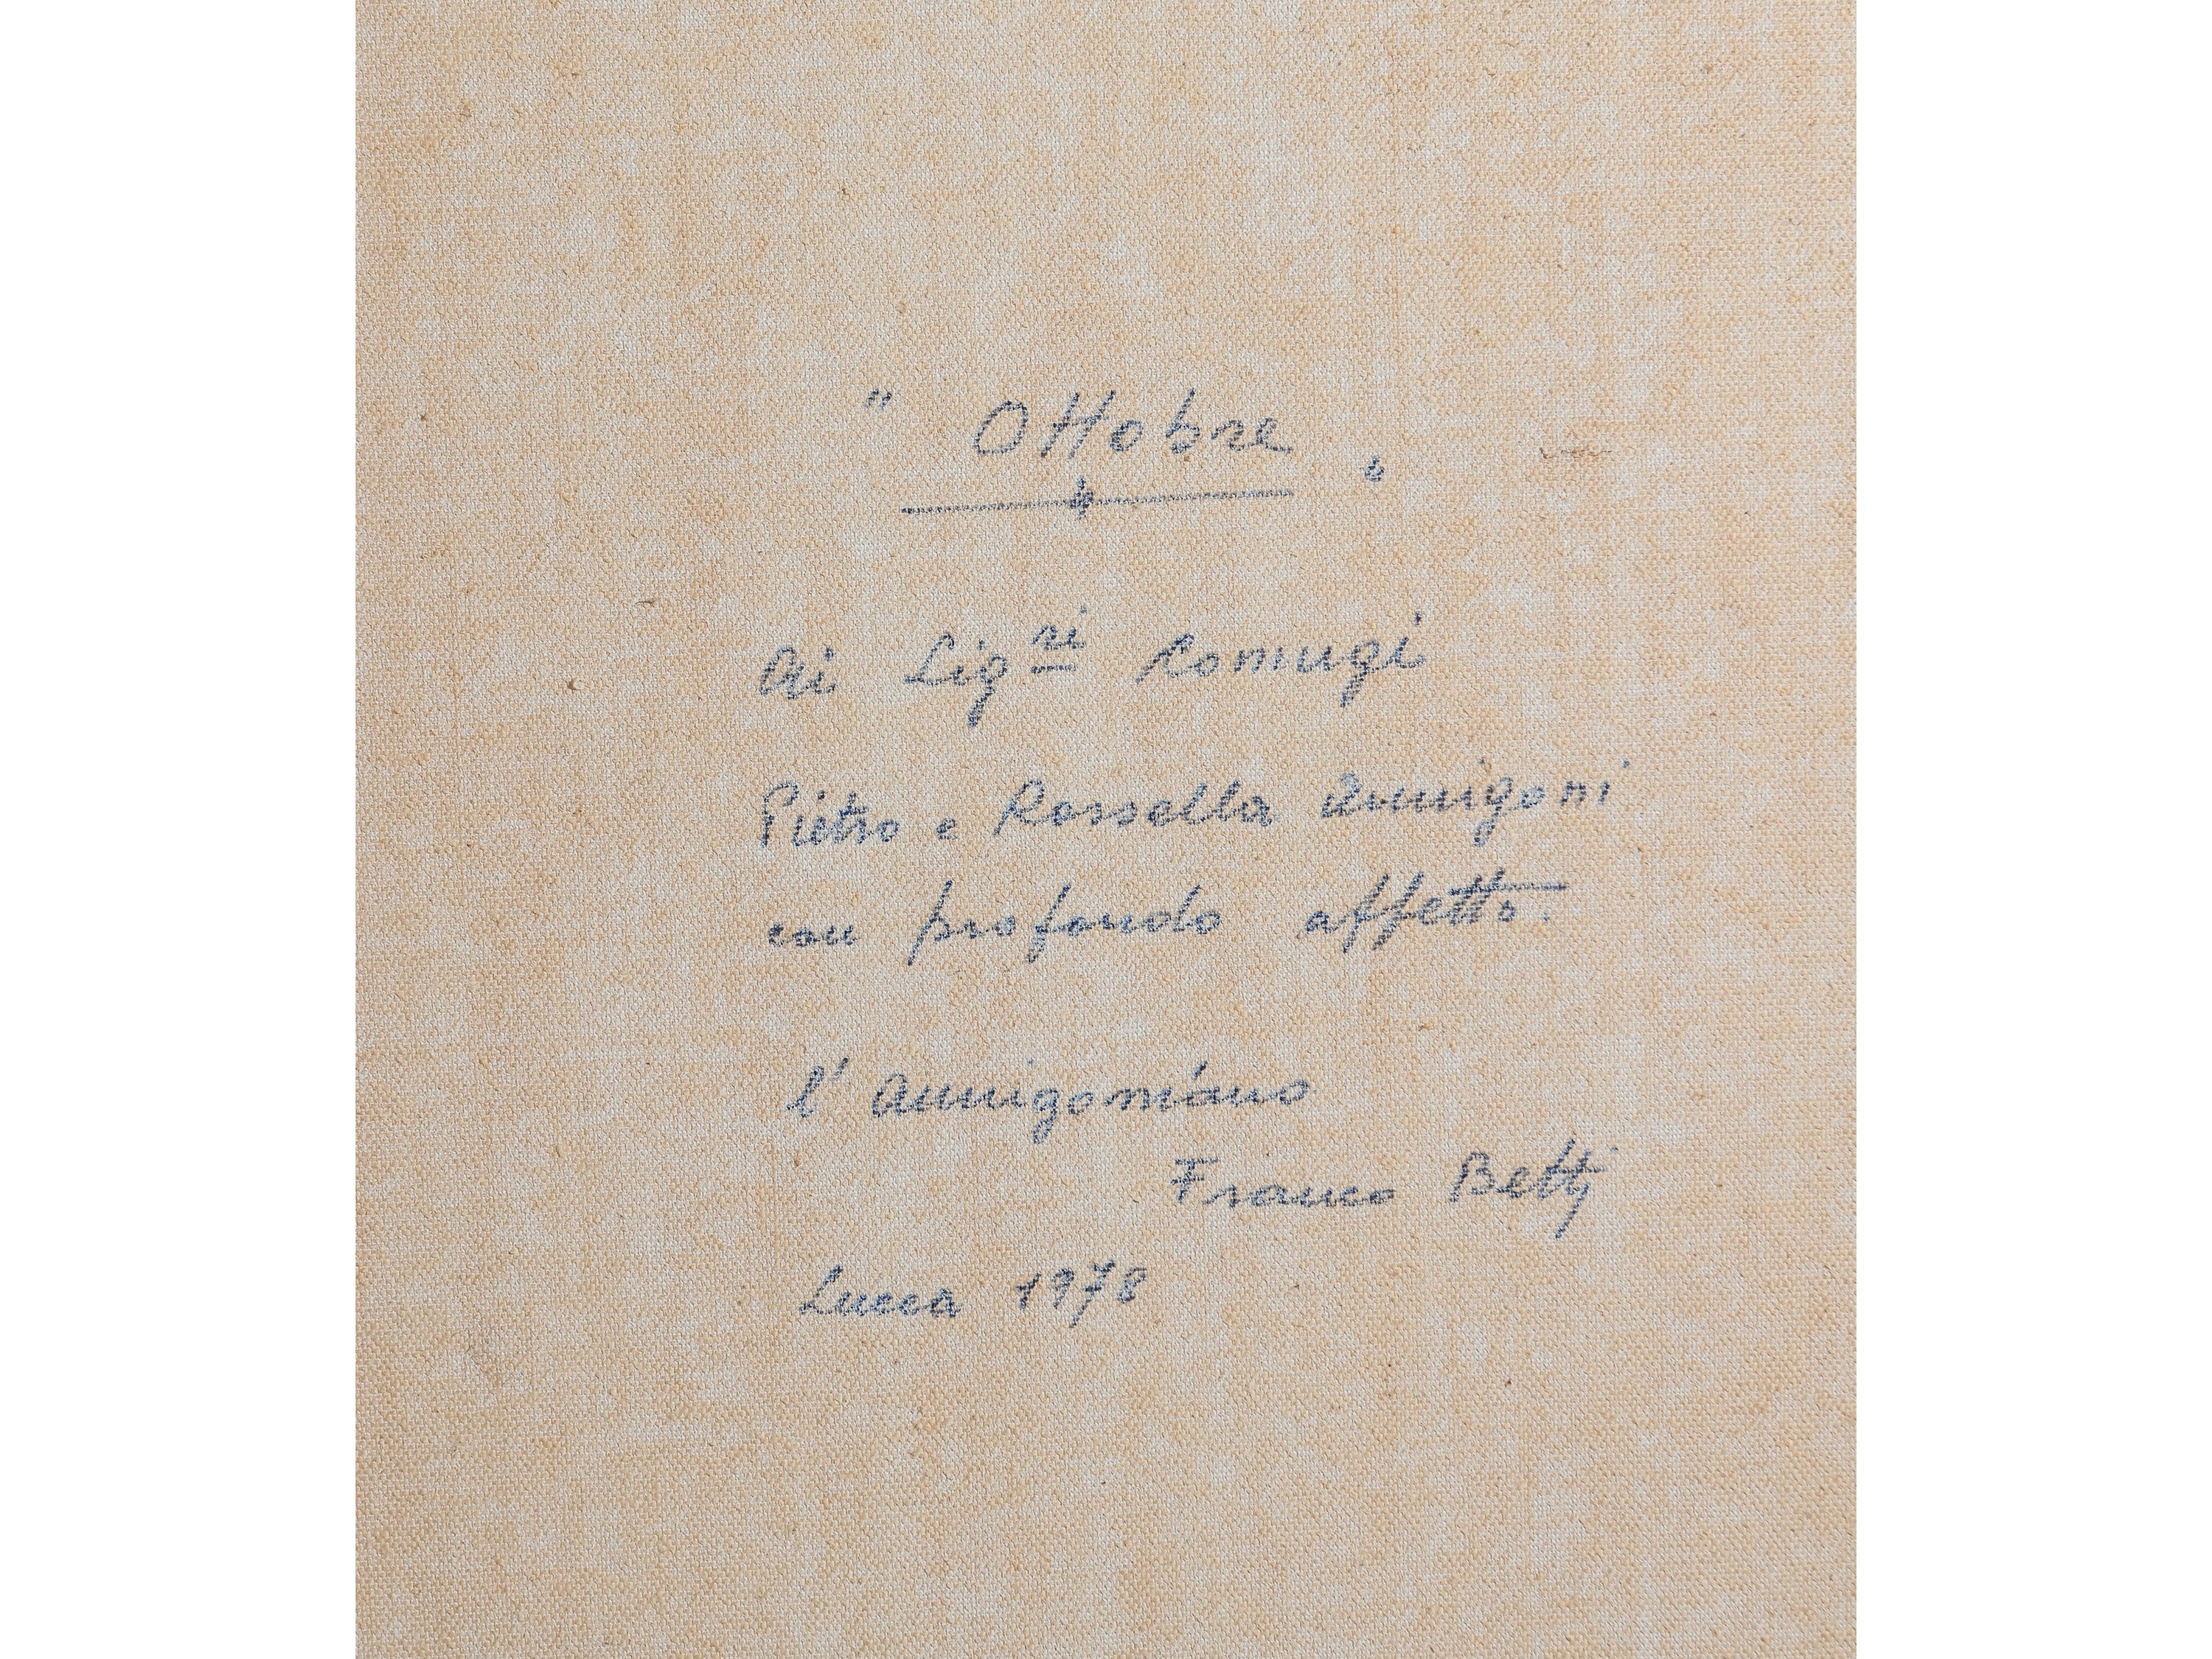 " Ottobre "
Ai Sig.ri Coniugi
Pietro e Rossella Annigoni
con profondo affetto.
l' annigoniano
Franco Betti
Lucca 1978